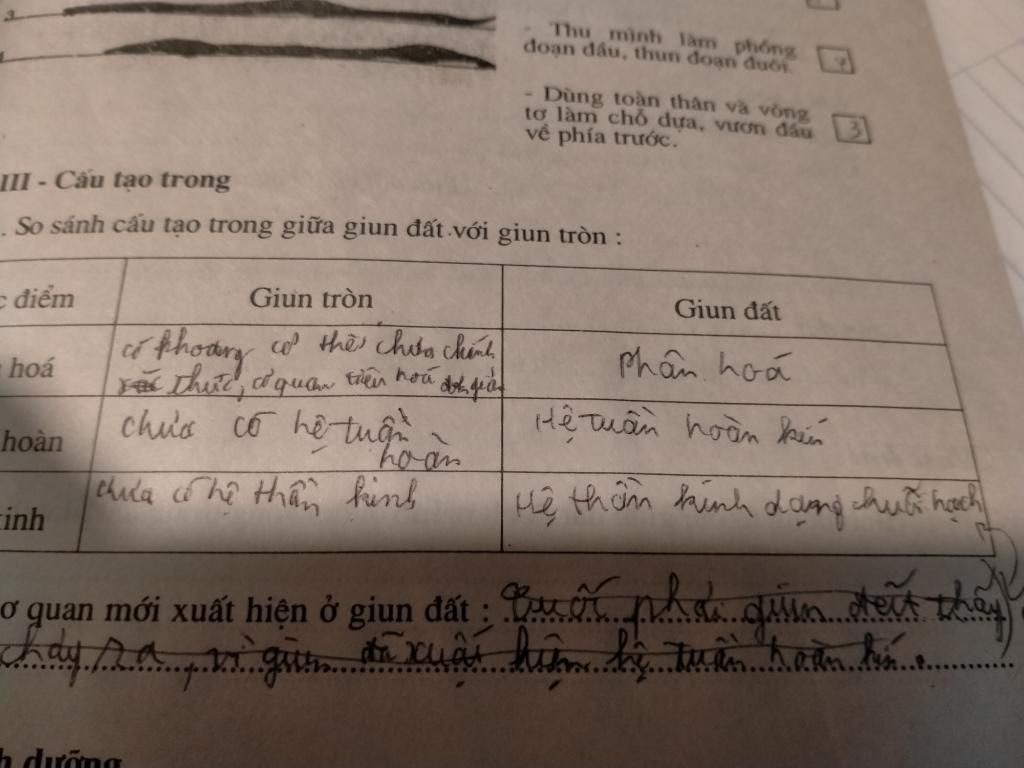 3
- Thu mình làm phồng
đoạn đầu, thun đoạn đuôi.
4
- Dùng toàn thân và vòng
tơ làm chỗ dựa, vươn đầu
về phía trước.
3
III - Cấu tạo trong
. So sánh cấu tạo trong giữa giun đất với giun tròn :
c điểm
Giun tròn
Giun đất
hoá
có khoang cơ thể chưa chính
thức, cơ quan tiêu hoá đơn giản
Phân hoá
hoàn
chưa có hệ tuần
hoàn
Hệ tuần hoàn kín
kinh
chưa có hệ thần kinh
Hệ thần kinh dạng chuỗi hạch
ơ quan mới xuất hiện ở giun đất : phải giun đất thấy
chảy ra, vì giun đã xuất hiện hệ tuần hoàn kín.
h dưỡng